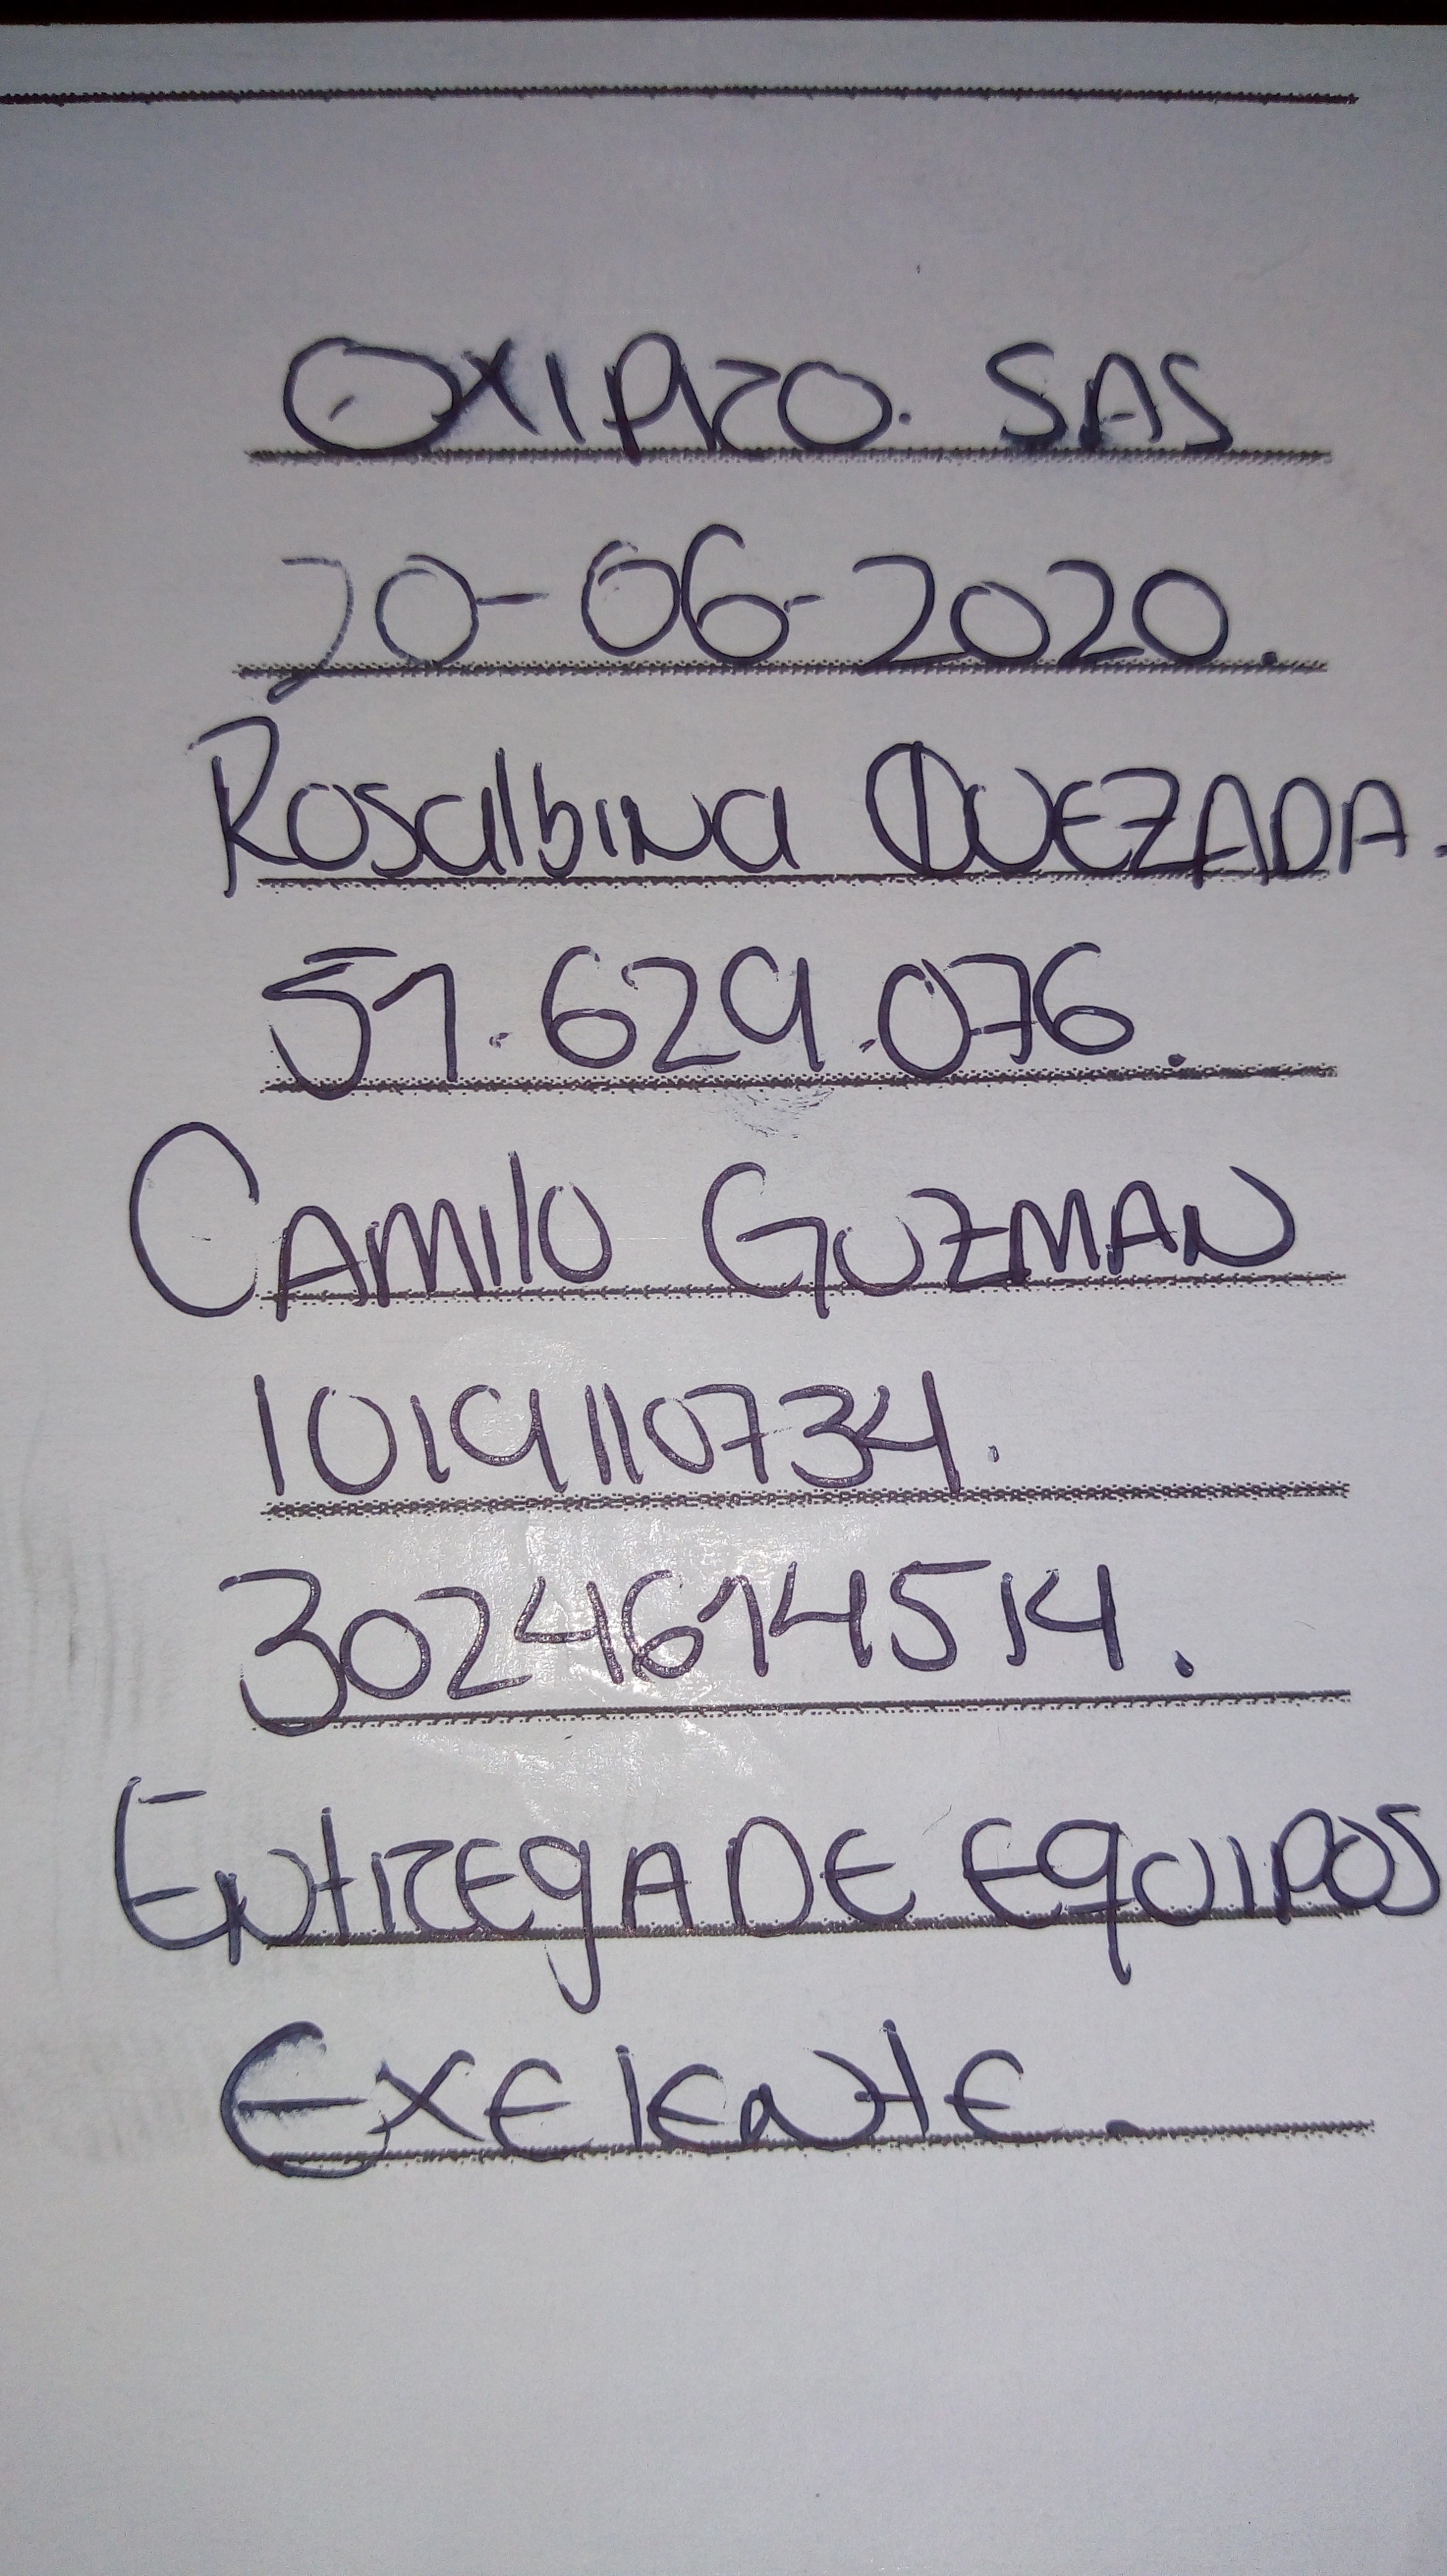 OXIPRO. SAS
20-06-2020.
Rosalbina QUEZADA.
51.629.076.
CAMIlO GUZMAN
1019110734.
3024614514.
ENtREgA DE EqUIPOS
EXElENtE.